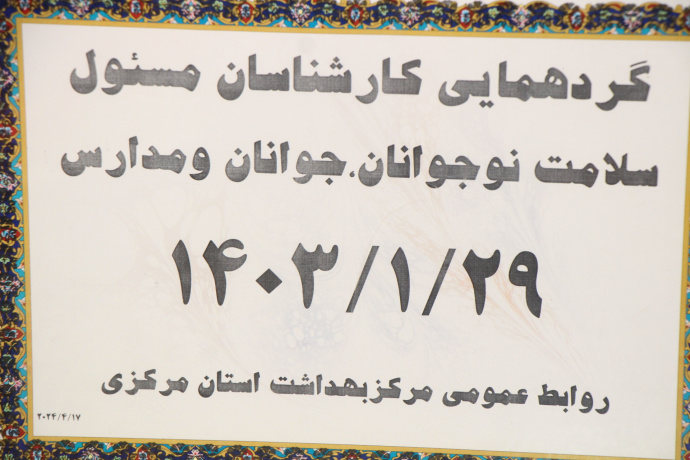 گردهمایی کارشناسان مسئول
سلامت نوجوانان.جوانان ومدارس
۱۴۰۳/۱/۲۹
روابط عمومی مرکزبهداشت استان مرکزی
۲۰۲۴/۴/۱۷